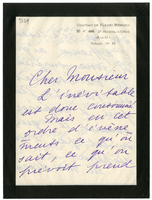 Cher Monsieur
L'inévitable
est donc consommé
Mais en cet
ordre d'évène-
ments ce qu'on
sait, ce qu'on
prévoit prend